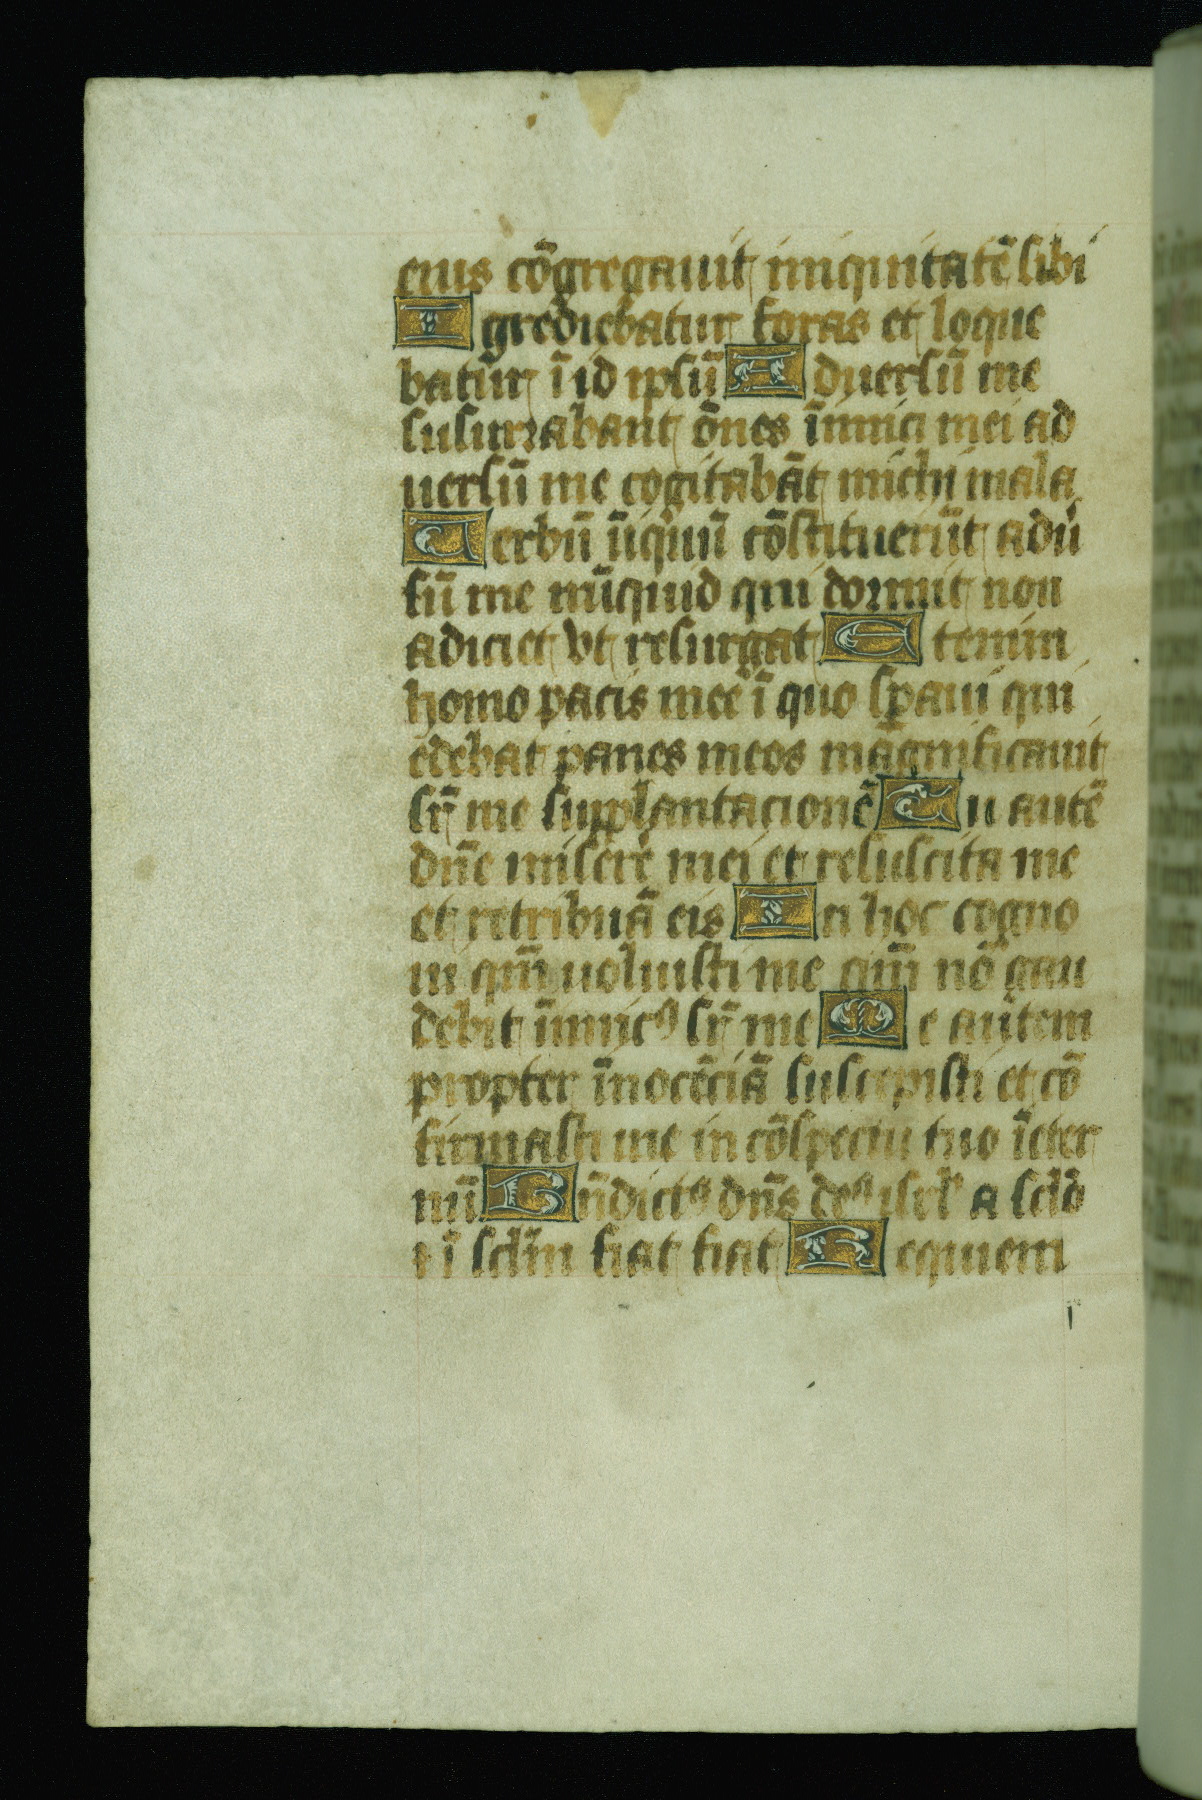 eius cōgregauit iniquitatē sibi
Igrediebatur foras et loque
batur ī id ipsū Aduersū me
susurrabant ōnes īimici mei ad
uersū me cogitabāt michi mala
Uerbū īiquū cōstituerūt adu̾
sū me nūquid qui dormit non
adiciet vt resurgat Etenim
homo pacis mee ī quo sp̄aui qui
edebat panes meos magnificauit
sr̄ me supplantacionē Tu autē
dn̄e misere mei et resuscita me
et retribuā eis I hoc cogno
ui qm̄ uoluisti me qm̄ nō gau
debit īimicꝰ sr̄ me Me autem
propter īnocēciā suscepisti et cō
firmasti me in cōspectu tuo īeter
nū Bn̄dictꝰ dn̄s deꝰ isrl̄ a sclō
⁊ ī sclm̄ fiat fiat Requiem